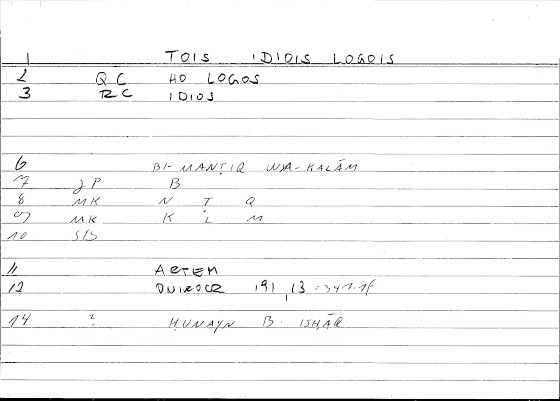 1 TOIS IDIOIS LOGOIS
2 QC HO LOGOS
3 RC IDIOS
6 BI-MANṬIQ WA-KALĀM
7 JP B
8 MK N Ṭ Q
9 MK K L M
10 SIS
11 ARTEM
12 ONIROCR 191,13 = 341.1f
14 ? ḤUNAYN B. ISḤĀQ